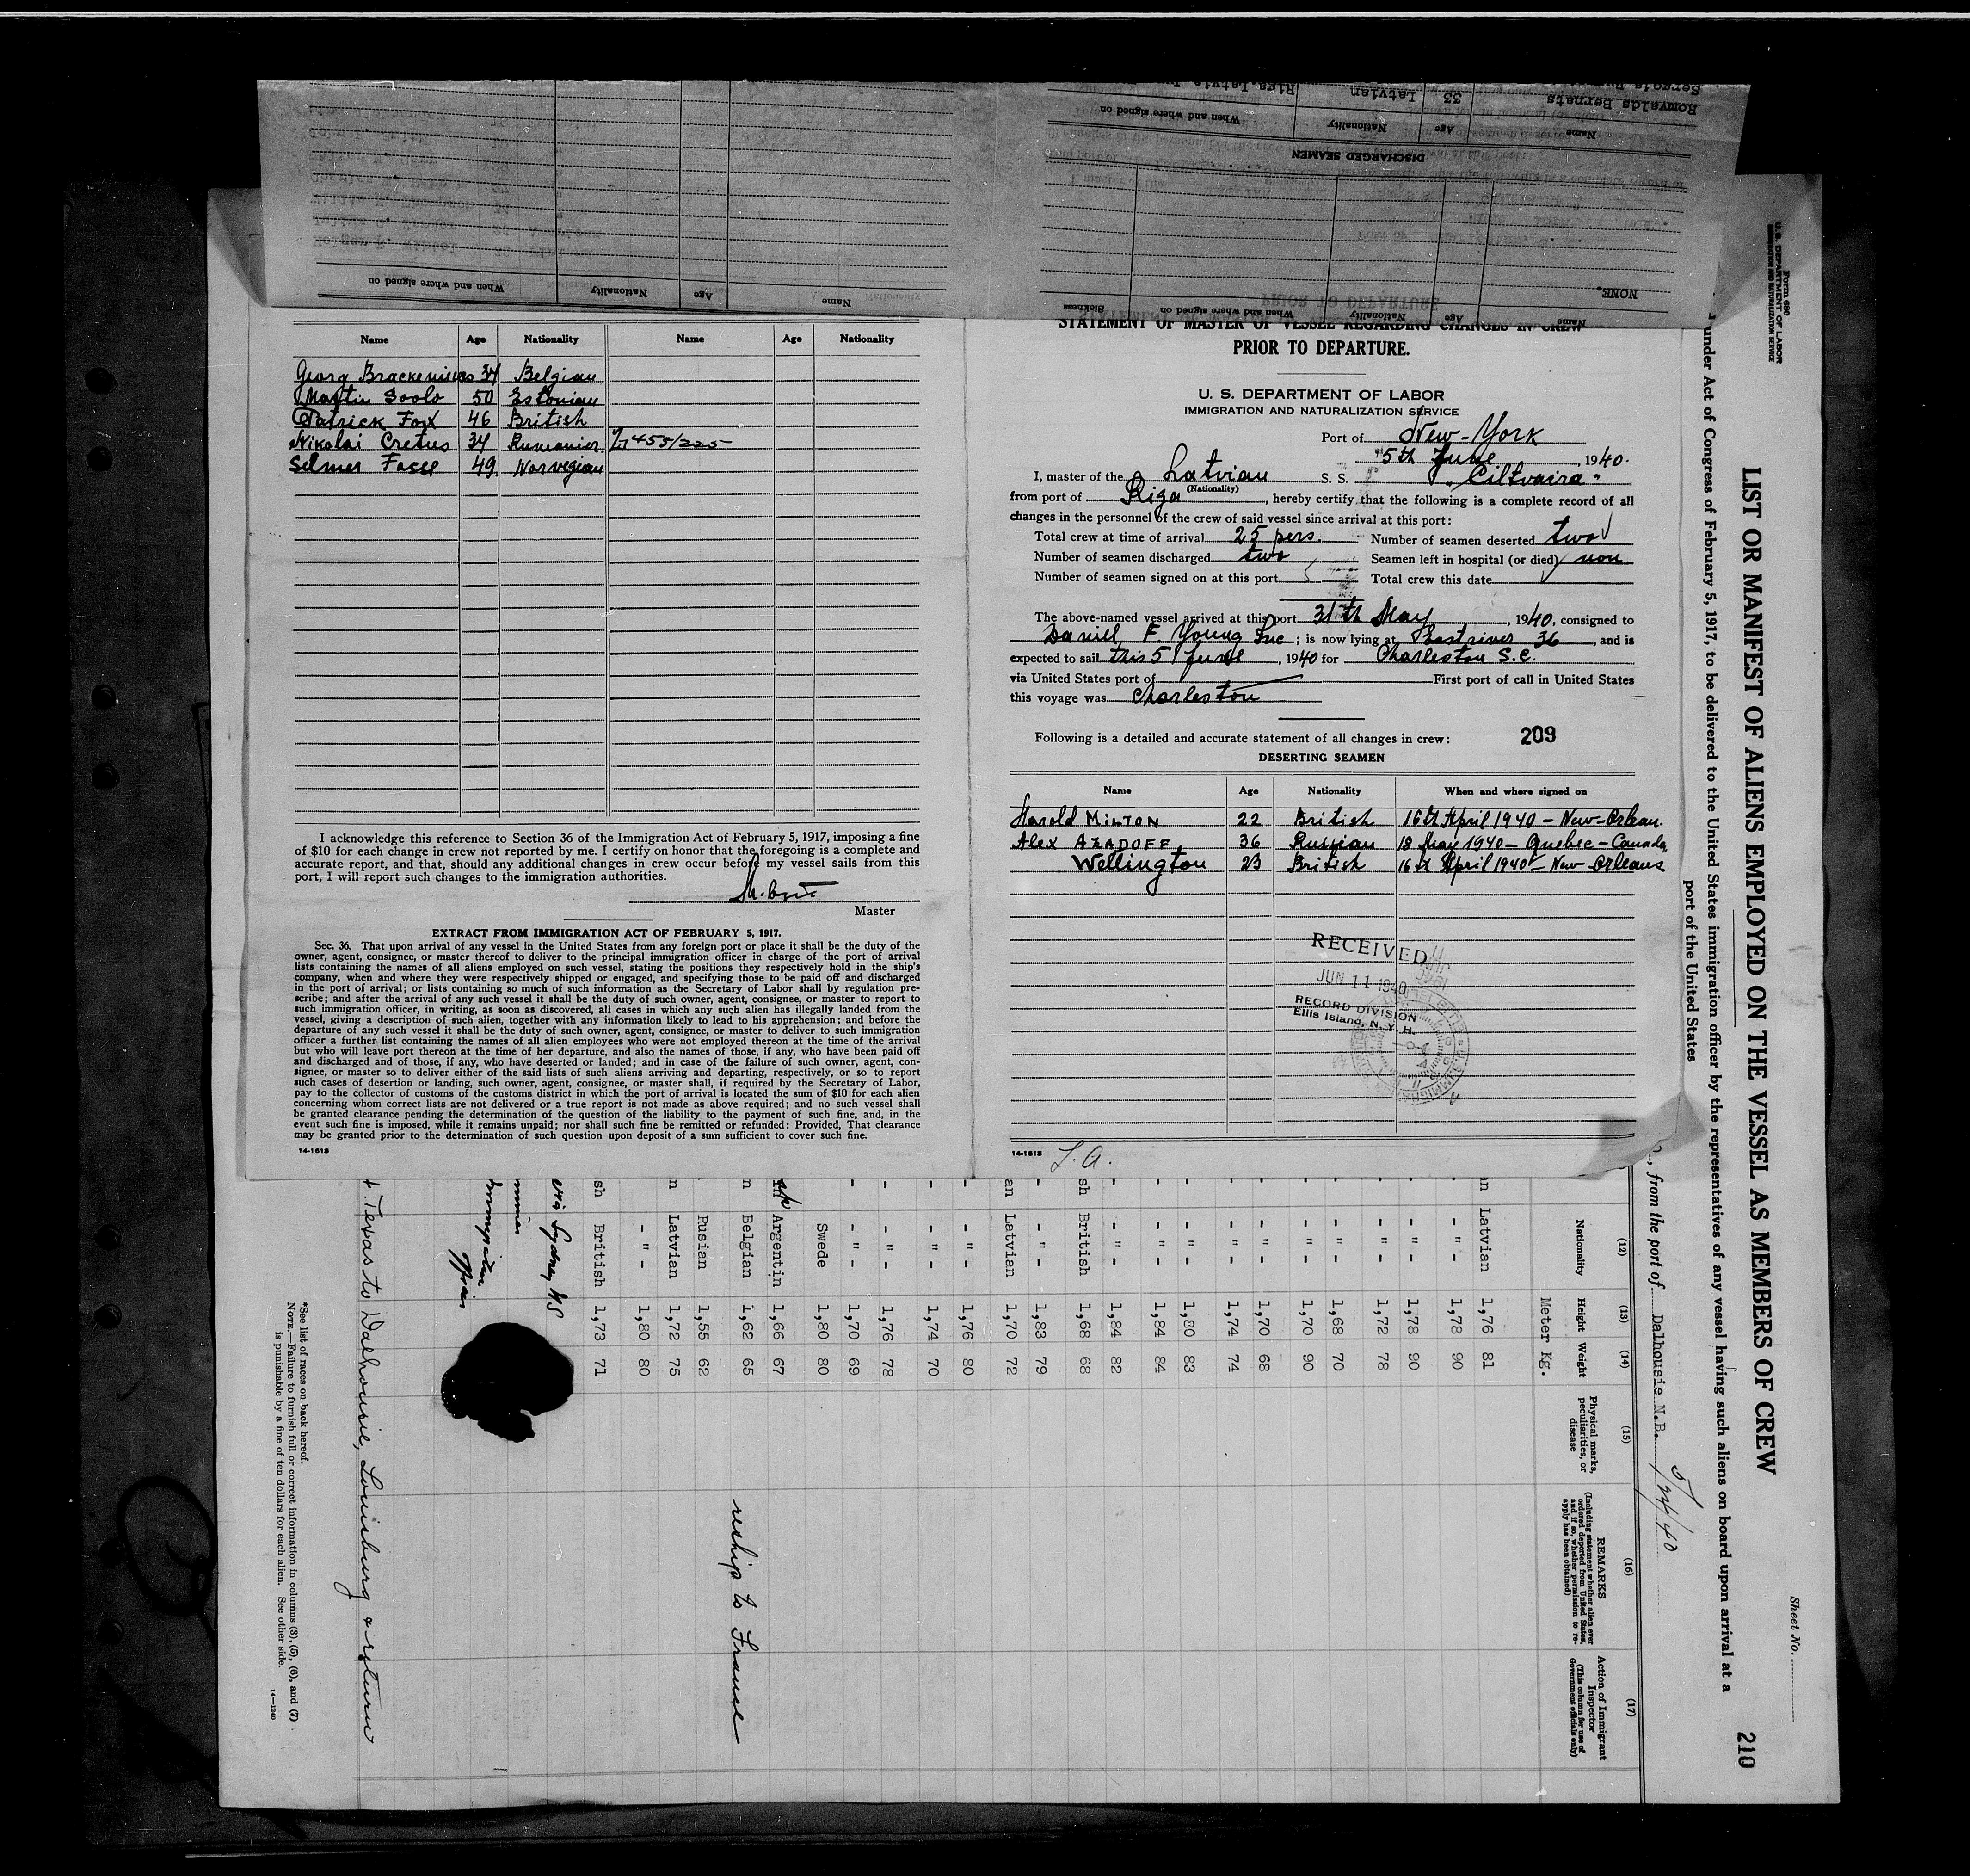 Name Age Nationality When and where signed on
NONE.
Name When and where signed on Sickness
DISCHARGED SEAMEN
Name Age Nationality When and where signed on
Romvalds Bernats 33 Latvian Riga Latvia
Name Age Nationality Name Age Nationality
Georg 34 Belgian
Martin Soolo 50 Estonian
Patrick Fox 46 British
Nikolai Cretus 34 Rumanier 455/225
Selmer Fosse 49 Norvegian
I acknowledge this reference to Section 36 of the Immigration Act of February 5, 1917, imposing a fine
of $10 for each change in crew not reported by me. I certify on honor that the foregoing is a complete and
accurate report, and that, should any additional changes in crew occur before my vessel sails from this
port, I will report such changes to the immigration authorities.
Master
EXTRACT FROM IMMIGRATION ACT OF FEBRUARY 5, 1917.
Sec. 36. That upon arrival of any vessel in the United States from any foreign port or place it shall be the duty of the
owner, agent, consignee, or master thereof to deliver to the principal immigration officer in charge of the port of arrival
lists containing the names of all aliens employed on such vessel, stating the positions they respectively hold in the ship's
company, when and where they were respectively shipped or engaged, and specifying those to be paid off and discharged
in the port of arrival; or lists containing so much of such information as the Secretary of Labor shall by regulation pre-
scribe; and after the arrival of any such vessel it shall be the duty of such owner, agent, consignee, or master to report to
such immigration officer, in writing, as soon as discovered, all cases in which any such alien has illegally landed from the
vessel, giving a description of such alien, together with any information likely to lead to his apprehension; and before the
departure of any such vessel it shall be the duty of such owner, agent, consignee, or master to deliver to such immigration
officer a further list containing the names of all alien employees who were not employed thereon at the time of the arrival
but who will leave port thereon at the time of her departure, and also the names of those, if any, who have been paid off
and discharged and of those, if any, who have deserted or landed; and in case of the failure of such owner, agent, con-
signee, or master so to deliver either of the said lists of such aliens arriving and departing, respectively, or so to report
such cases of desertion or landing, such owner, agent, consignee, or master shall, if required by the Secretary of Labor,
pay to the collector of customs of the customs district in which the port of arrival is located the sum of $10 for each alien
concerning whom correct lists are not delivered or a true report is not made as above required; and no such vessel shall
be granted clearance pending the determination of the question of the liability to the payment of such fine, and, in the
event such fine is imposed, while it remains unpaid; nor shall such fine be remitted or refunded: Provided, That clearance
may be granted prior to the determination of such question upon deposit of a sum sufficient to cover such fine.
14-1613
STATEMENT OF MASTER OF VESSEL REGARDING CHANGES IN CREW
PRIOR TO DEPARTURE.
U. S. DEPARTMENT OF LABOR
IMMIGRATION AND NATURALIZATION SERVICE
Port of New-York
5th June, 1940.
I, master of the Latvian S. S. "Ciltvaira"
(Nationality)
from port of Riga, hereby certify that the following is a complete record of all
changes in the personnel of the crew of said vessel since arrival at this port:
Total crew at time of arrival 25 pers. Number of seamen deserted two
Number of seamen discharged two Seamen left in hospital (or died) non
Number of seamen signed on at this port Total crew this date
The above-named vessel arrived at this port 31th May, 1940, consigned to
Daniel F. Young Inc; is now lying at Eastriver 36, and is
expected to sail this 5 June, 1940 for Charleston S.C.
via United States port of First port of call in United States
this voyage was Charleston
Following is a detailed and accurate statement of all changes in crew: 209
DESERTING SEAMEN
Name Age Nationality When and where signed on
Harold MILTON 22 British 16th April 1940 - New-Orlean.
Alex AZADOFF 36 Russian 18 May 1940 - Quebec - Canada,
Wellington 23 British 16th April 1940 - New-Orleans
RECEIVED
JUN 11 1940
RECORD DIVISION
Ellis Island, N. Y. H.
14-1613
Form 680
U. S. DEPARTMENT OF LABOR
IMMIGRATION AND NATURALIZATION SERVICE
Sheet No.
210
LIST OR MANIFEST OF ALIENS EMPLOYED ON THE VESSEL AS MEMBERS OF CREW
under Act of Congress of February 5, 1917, to be delivered to the United States immigration officer by the representatives of any vessel having such aliens on board upon arrival at a
port of the United States
, from the port of Dalhousie N.B. 5/24/40
(12) (13) (14) (15) (16) (17)
Nationality Height Weight Physical marks, peculiarities, or disease
REMARKS (Including statement whether alien ever ordered deported from United States, and if so, whether permission to re-apply has been obtained)
Action of Immigrant Inspector (This column for use of Government officials only)
Meter Kg.
n Latvian 1,76 81
- - " - 1,78 90
- - " - 1,78 90
- - " - 1,72 78
- - " - 1,68 70
- - " - 1,70 90
- - " - 1,70 68
- - " - 1,74 74
- - " - 1,80 83
- - " - 1,84 84
- - " - 1,84 82
sh British 1,68 68
- - " - 1,83 79
an Latvian 1,70 72
- - " - 1,76 80
- - " - 1,74 70
- - " - 1,76 78
- - " - 1,70 69
Swede 1,80 80
Argentin 1,66 67
n Belgian 1,62 65 reship to France
Rusian 1,55 62
n Latvian 1,72 75
- " - 1,80 80
sh British 1,73 71
via Sydney NS
Texas to Dalhousie, Louisburg & return
*See list of races on back hereof.
NOTE.—Failure to furnish full or correct information in columns (3), (5), (6), and (7)
is punishable by a fine of ten dollars for each alien. See other side.
14-1240